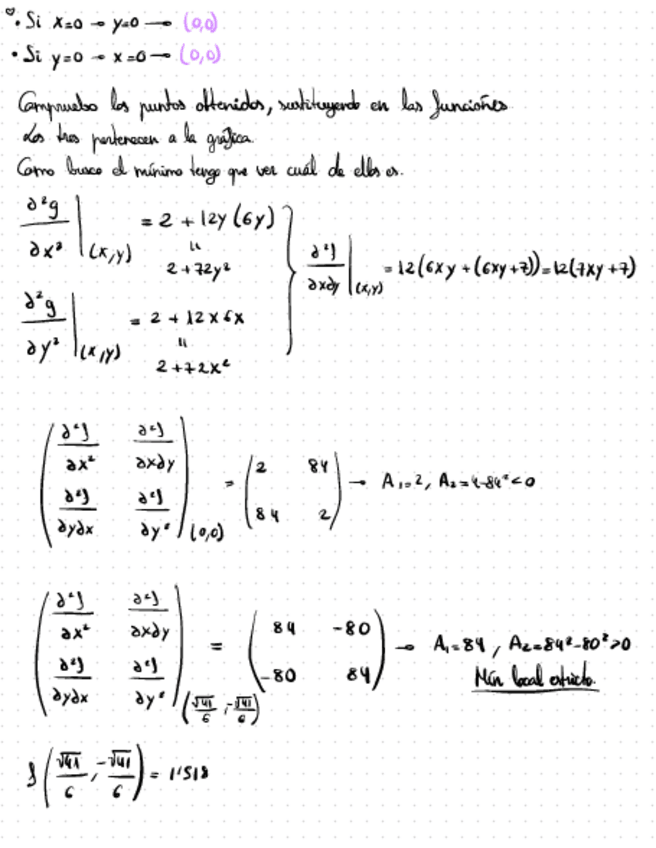 • Si x=0 → y=0 → (0,0)
• Si y=0 → x=0 → (0,0)
Compruebo los puntos obtenidos, sustituyendo en las funciones.
Los tres pertenecen a la gráfica.
Como busco el mínimo tengo que ver cuál de ellos es.
∂²g/∂x² |(x,y) = 2 + 12y (6y)
=
2+72y²
∂²g/∂y² |(x,y) = 2 + 12x6x
=
2+72x²
} ∂²f/∂x∂y |(x,y) = 12(6xy + (6xy+7)) = 12(7xy+7)
(∂²f/∂x² ∂²f/∂x∂y
∂²f/∂y∂x ∂²f/∂y²)(0,0) = (2 84
84 2) → A₁=2, A₂=4-84²<0
(∂²f/∂x² ∂²f/∂x∂y
∂²f/∂y∂x ∂²f/∂y²)(√41/6, -√41/6) = (84 -80
-80 84) → A₁=84, A₂=84²-80²>0
Mín local estricto.
f(√41/6, -√41/6) = 1'518